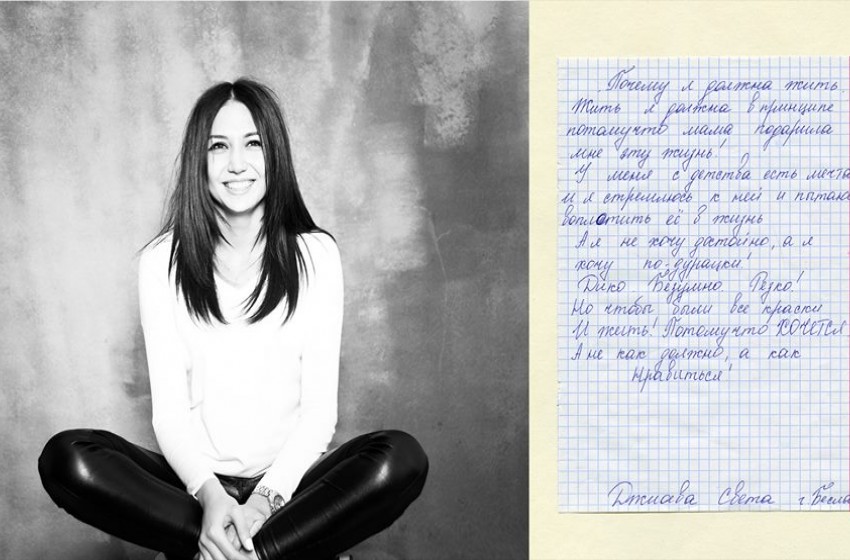 Почему я должна жить.
Жить я должна в принципе
потомучто мама подарила
мне эту жизнь!
У меня с детства есть мечта
и я стремлюсь к ней и пытаюсь
воплотить её в жизнь
А я не хочу достойно, а я
хочу по-дурацки!
Дико Безумно Резко!
Но чтобы были все краски
И жить! Потомучто ХОЧЕТСЯ
А не как должно, а как
нравиться!
Света г. Бесла